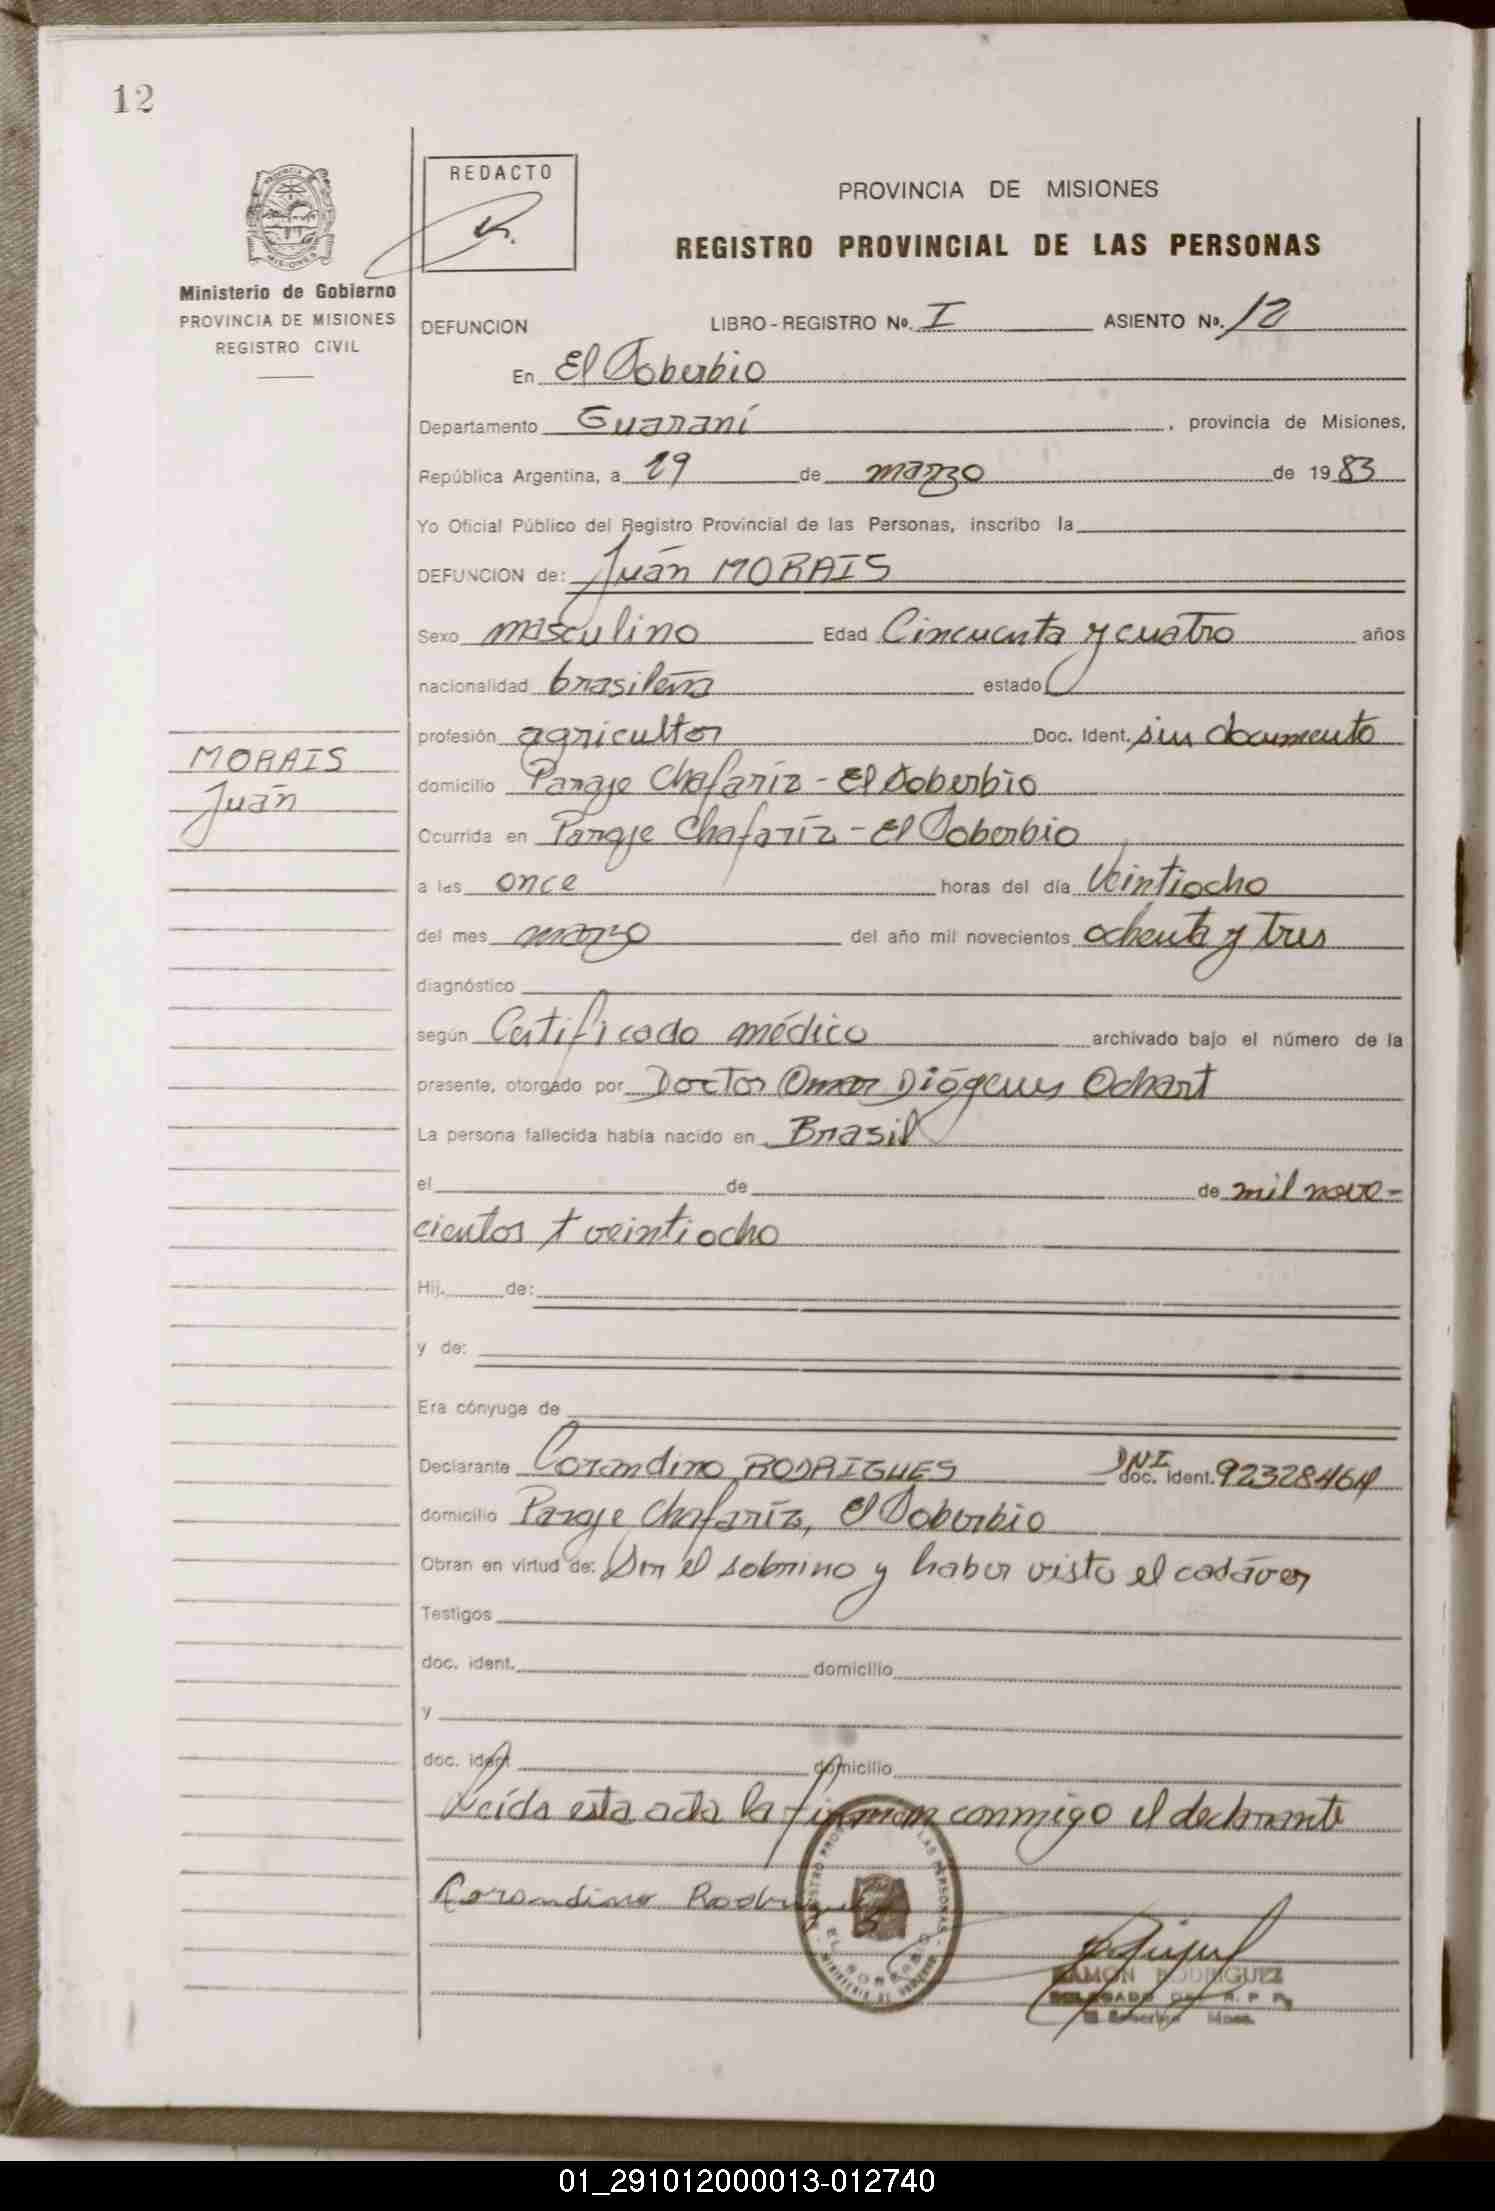 12
REDACTO
PROVINCIA DE MISIONES
REGISTRO PROVINCIAL DE LAS PERSONAS
Ministerio de Gobierno
PROVINCIA DE MISIONES
REGISTRO CIVIL
DEFUNCION LIBRO-REGISTRO No. I ASIENTO No. 12
En El Soberbio
Departamento Guaraní, provincia de Misiones,
República Argentina, a 29 de marzo de 1983
Yo Oficial Público del Registro Provincial de las Personas, inscribo la
DEFUNCION de: Juán MORAIS
Sexo masculino Edad Cincuenta y cuatro años
nacionalidad brasileña estado
profesión agricultor Doc. Ident. sin documento
MORAIS
Juán
domicilio Paraje Chafaríz - El Soberbio
Ocurrida en Paraje Chafaríz - El Soberbio
a las once horas del día Veintiocho
del mes marzo del año mil novecientos ochenta y tres
diagnóstico
según Certificado médico archivado bajo el número de la
presente, otorgado por Doctor Omar Diógenes Ochart
La persona fallecida había nacido en Brasil
el de de mil nove-
cientos veintiocho
Hij. de:
y de:
Era cónyuge de
Declarante Corandino RODRIGUES DNI doc. ident. 92328464
domicilio Paraje Chafaríz, El Soberbio
Obran en virtud de: Ser el sobrino y haber visto el cadáver
Testigos
doc. ident. domicilio
y
doc. ident domicilio
Leída esta acta la firman conmigo el declarante
Corandino Rodrigues
RAMON RODRIGUEZ
DELEGADO DEL R. P. P.
El Soberbio Mnes.
01_291012000013-012740